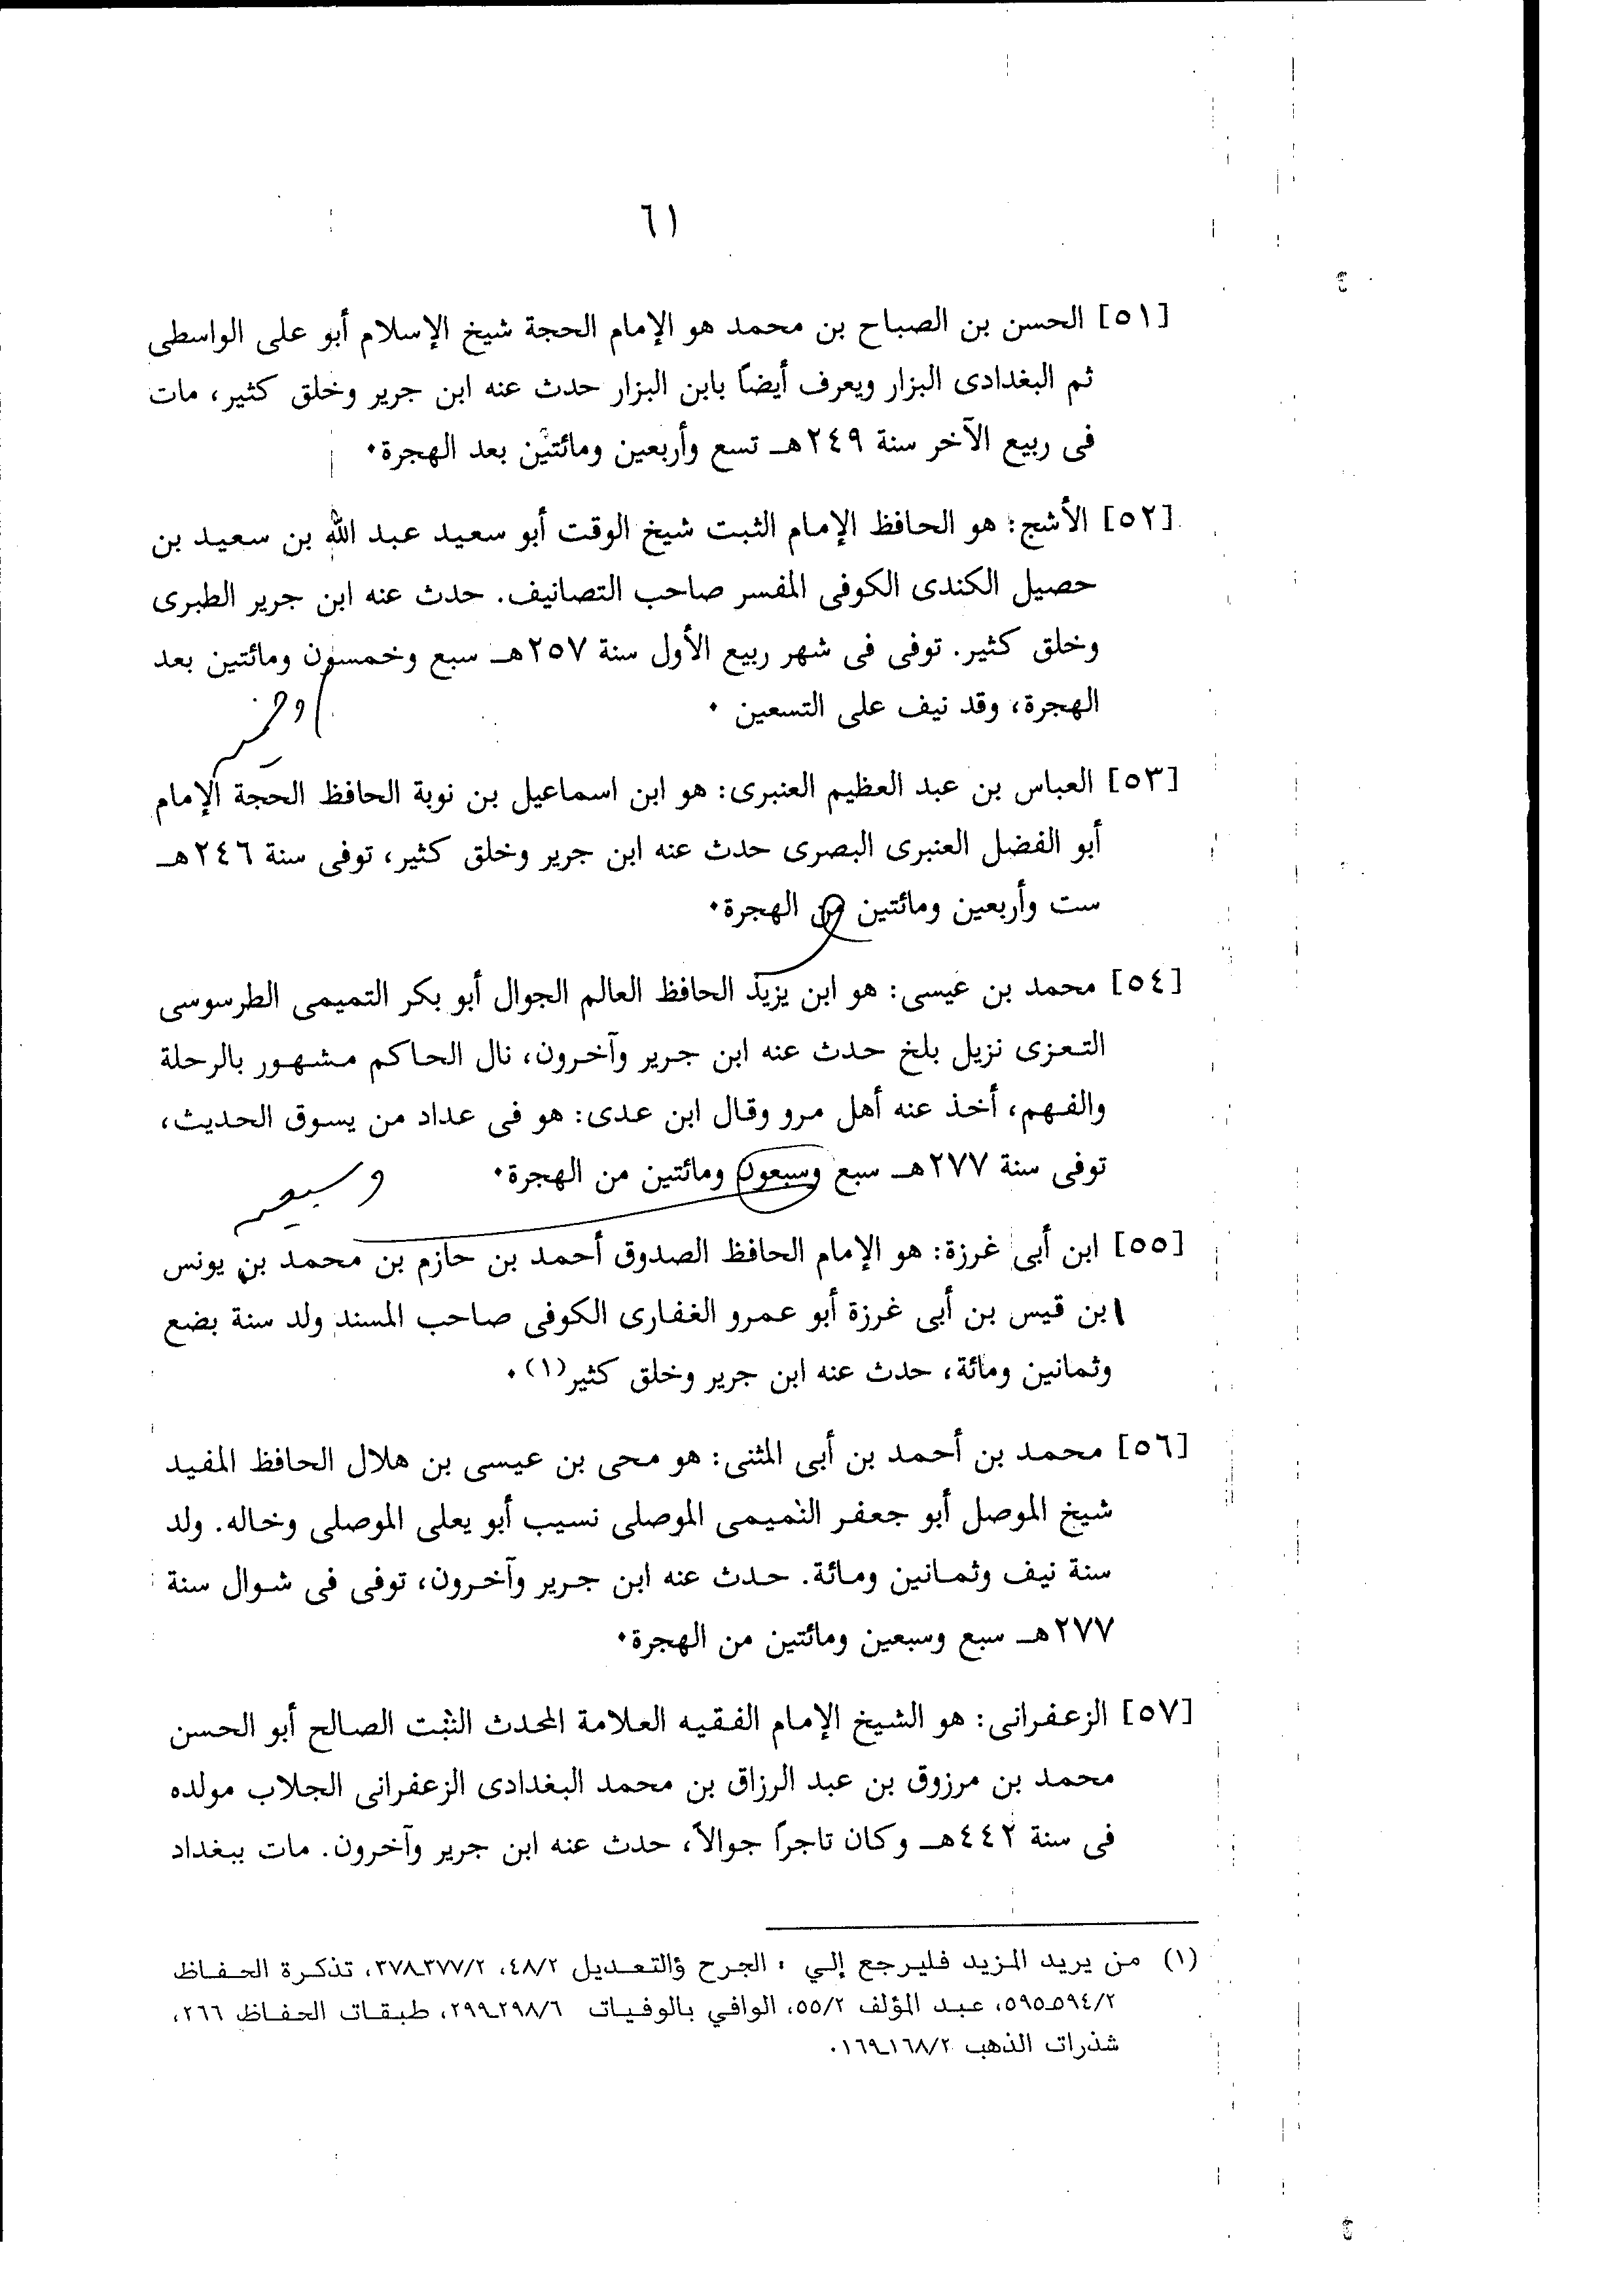 ٦١
[٥١] الحسن بن الصباح بن محمد هو الإمام الحجة شيخ الإسلام أبو على الواسطى
ثم البغدادى البزار ويعرف أيضاً بابن البزار حدث عنه ابن جرير وخلق كثير، مات
فى ربيع الآخر سنة ٢٤٩هـ تسع وأربعين ومائتين بعد الهجرة٠
[٥٢] الأشج: هو الحافظ الإمام الثبت شيخ الوقت أبو سعيد عبد الله بن سعيد بن
حصيل الكندى الكوفى المفسر صاحب التصانيف. حدث عنه ابن جرير الطبرى
وخلق كثير. توفى فى شهر ربيع الأول سنة ٢٥٧هـ سبع وخمسون ومائتين بعد
الهجرة، وقد نيف على التسعين ٠
[٥٣] العباس بن عبد العظيم العنبرى: هو ابن اسماعيل بن نوبة الحافظ الحجة الإمام
أبو الفضل العنبرى البصرى حدث عنه ابن جرير وخلق كثير، توفى سنة ٢٤٦هـ
ست وأربعين ومائتين من الهجرة٠
[٥٤] محمد بن عيسى: هو ابن يزيد الحافظ العالم الجوال أبو بكر التميمى الطرسوسى
التعزى نزيل بلخ حدث عنه ابن جرير وآخرون، نال الحاكم مشهور بالرحلة
والفهم، أخذ عنه أهل مرو وقال ابن عدى: هو فى عداد من يسوق الحديث،
توفى سنة ٢٧٧هـ سبع وسبعون ومائتين من الهجرة٠
وسبعين
[٥٥] ابن أبى غرزة: هو الإمام الحافظ الصدوق أحمد بن حازم بن محمد بن يونس
ابن قيس بن أبى غرزة أبو عمرو الغفارى الكوفى صاحب المسند ولد سنة بضع
وثمانين ومائة، حدث عنه ابن جرير وخلق كثير(١)٠
[٥٦] محمد بن أحمد بن أبى المثنى: هو محى بن عيسى بن هلال الحافظ المفيد
شيخ الموصل أبو جعفر التميمى الموصلى نسيب أبو يعلى الموصلى وخاله. ولد
سنة نيف وثمانين ومائة. حدث عنه ابن جرير وآخرون، توفى فى شوال سنة
٢٧٧هـ سبع وسبعين ومائتين من الهجرة٠
[٥٧] الزعفرانى: هو الشيخ الإمام الفقيه العلامة المحدث الثبت الصالح أبو الحسن
محمد بن مرزوق بن عبد الرزاق بن محمد البغدادى الزعفرانى الجلاب مولده
فى سنة ٤٤٢هـ وكان تاجراً جوالاً، حدث عنه ابن جرير وآخرون. مات ببغداد
(١) من يريد المزيد فليرجع إلي : الجرح والتعديل ٤٨/٢، ٣٧٧/٢ـ٣٧٨، تذكرة الحفاظ
٥٩٤/٢ـ٥٩٥، عبد المؤلف ٥٥/٢، الوافي بالوفيات ٢٩٨/٦ـ٢٩٩، طبقات الحفاظ ٢٦٦،
شذرات الذهب ١٦٨/٢ـ١٦٩٠